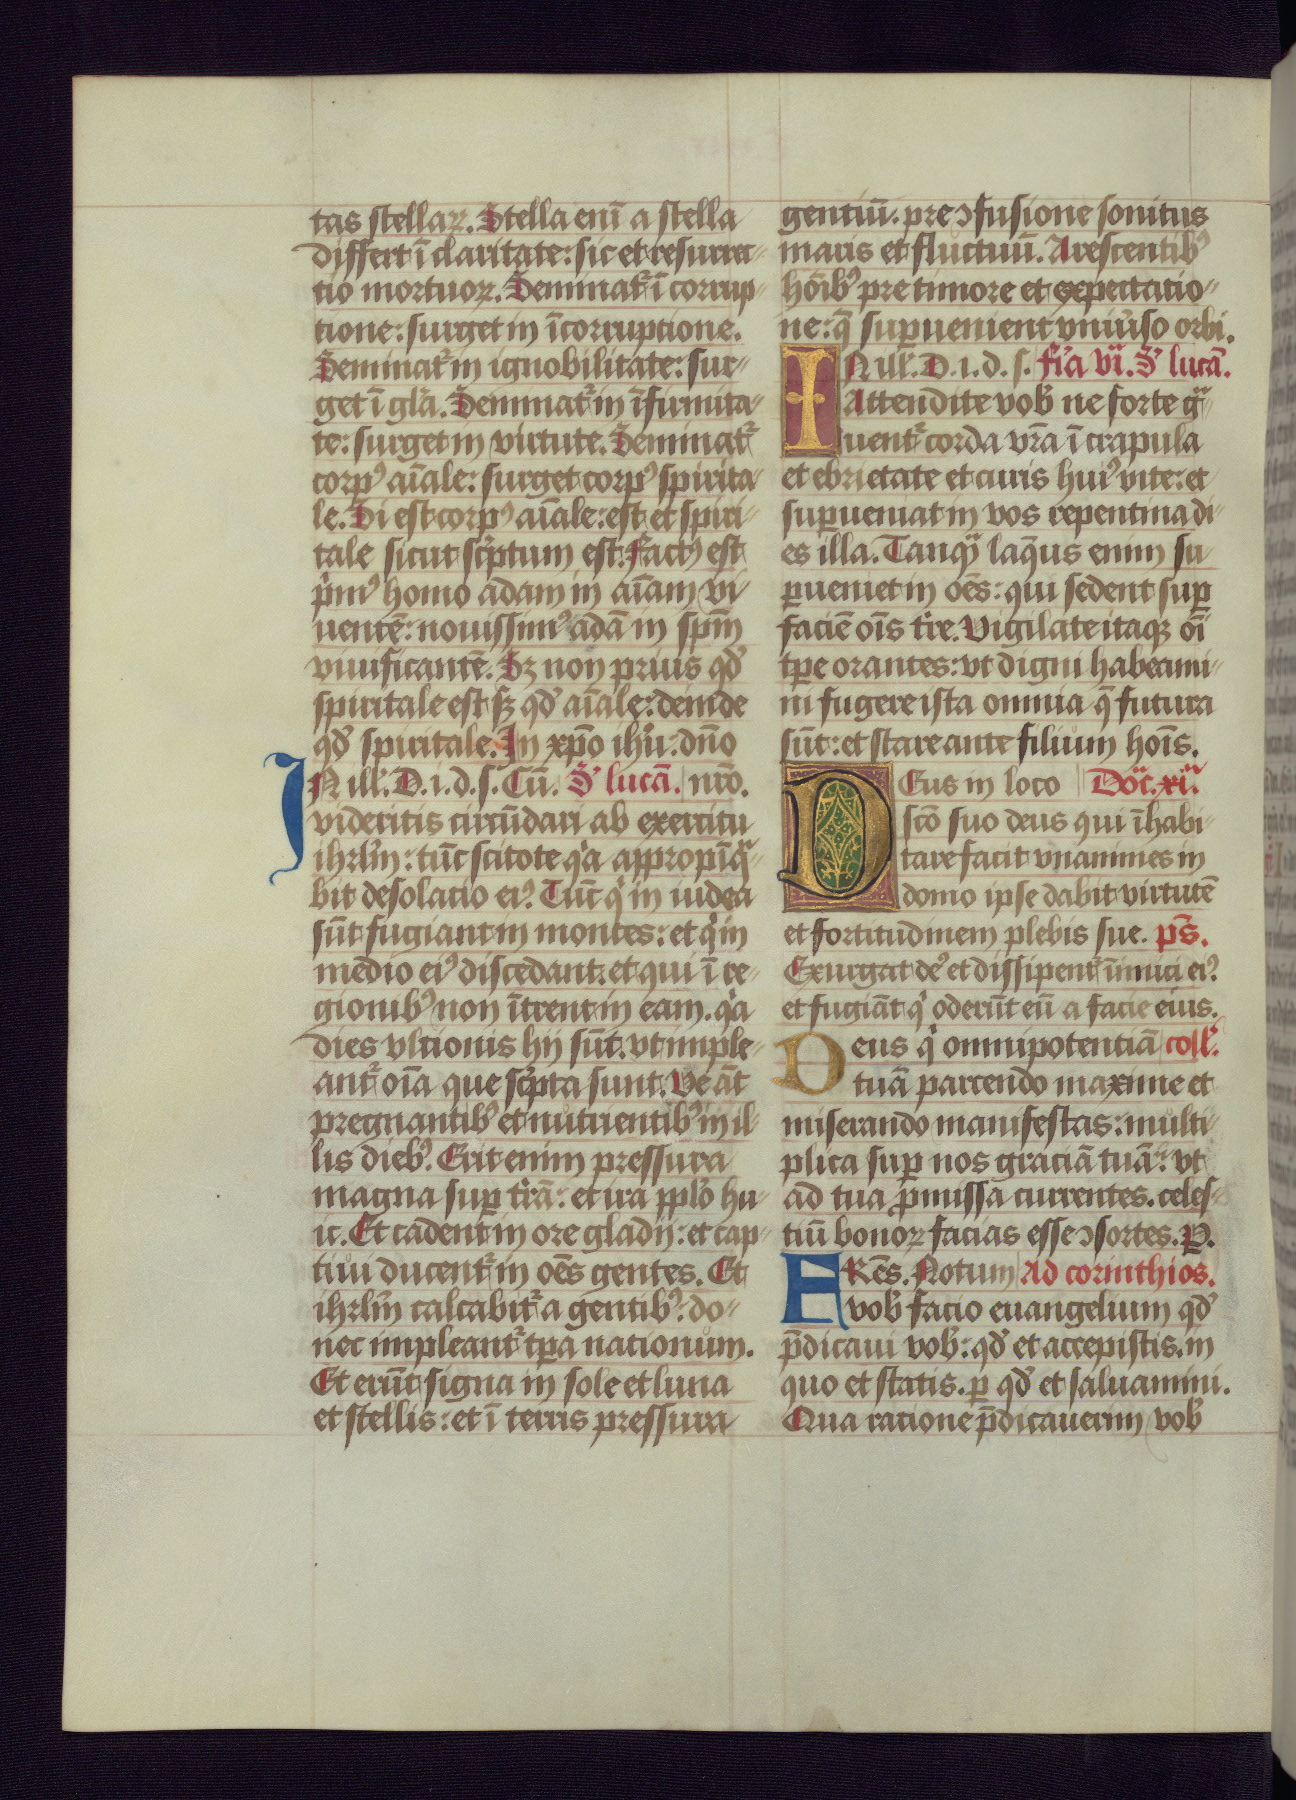 tas stellaꝝ. Stella eni̅ a stella
differt i̅ claritate: sic et resurrec-
tio mortuoꝝ. Seminat᷑ i̅ corrup-
tione: surget in i̅corruptione.
Seminat᷑ in ignobilitate: sur-
get i̅ gl̅a. Seminat᷑ in i̅firmita-
te: surget in virtute. Seminat᷑
corpꝰ ai̅ale: surget corpꝰ spirita-
le. Si est corpꝰ ai̅ale: est et spiri-
tale sicut sc̅ptum est. Factꝰ est
p̅mꝰ homo adam in ai̅am vi-
uente̅: nouissimꝰ ada̅ in sp̅m
viuificante̅. Sꝫ non prius qd̓
spiritale est sꝫ qd̓ ai̅ale: deinde
qd̓ spiritale. In xp̅o ihu̅: dn̅o
IN ill̓. D. i. d. s. Cu̅. S̓ luca̅. nr̅o.
videritis circu̅dari ab exercitu
ihrl̅m: tu̅c scitote qͥa appropi̅qͣ-
bit desolacio eiꝰ. Tu̅c qͥ in iudea
su̅t fugiant in montes: et qͥ in
medio eiꝰ discedant: et qui i̅ re-
gionibꝰ non i̅trent in eam. qͥa
dies vltionis hij su̅t. vt imple-
ant᷑ oi̅a que sc̅pta sunt. Ve a̅t
pregnantibꝰ et nutrientibꝰ in il-
lis diebꝰ. Erit enim pressura
magna suꝑ tr̅a̅: et ira pplo̅ hu-
ic. Et cadent in ore gladij: et cap-
tiui ducent᷑ in oe̅s gentes. Et
ihrl̅m calcabit᷑ a gentibꝰ: do-
nec impleant᷑ tp̅a nationum.
Et eru̅t signa in sole et luna
et stellis: et i̅ terris pressura
gentiu̅. pre ↄfusione sonitus
maris et fluctuu̅. Arescentibꝰ
ho̅ibꝰ pre timore et expectatio-
ne: q̅ suꝑuenient vniu̓so orbi.
IN ill̓. D. i. d. s. fr̅a vi. S̓ luca̅.
Attendite vob̓ ne forte gͣ-
uent᷑ corda vr̅a i̅ crapula
et ebrietate et curis huiꝰ vite: et
suꝑueniat in vos repentina di-
es illa. Tanqͣ laq̅us enim su-
ꝑueniet in oe̅s: qui sedent suꝑ
facie̅ oi̅s tr̅e. Vigilate itaqꝫ oi̅
tp̅e orantes: vt digni habeami-
ni fugere ista omnia q̅ futura
su̅t: et stare ante filium hoi̅s.
DEus in loco Do̅c. xi.
sc̅o suo deus qui i̅habi-
tare facit vnanimes in
domo ipse dabit virtute̅
et fortitudinem plebis sue. ps̅.
Exurgat deꝰ et dissipent᷑ i̅imici eiꝰ.
et fugia̅t qͥ oderu̅t eu̅ a facie eius.
Deus qͥ omnipotentia̅ coll̓.
tua̅ parcendo maxime et
miserando manifestas: multi-
plica suꝑ nos gracia̅ tua̅: vt
ad tua ꝓmissa currentes. celes-
tiu̅ bonoꝝ facias esse ↄsortes. P.
FRe̅s. Notum Ad corinthios.
vob̓ facio euangelium qd̓
p̅dicaui vob̓: qd̓ et accepistis. in
quo et statis. ꝑ qd̓ et saluamini.
Qua ratione p̅dicauerim vob̓